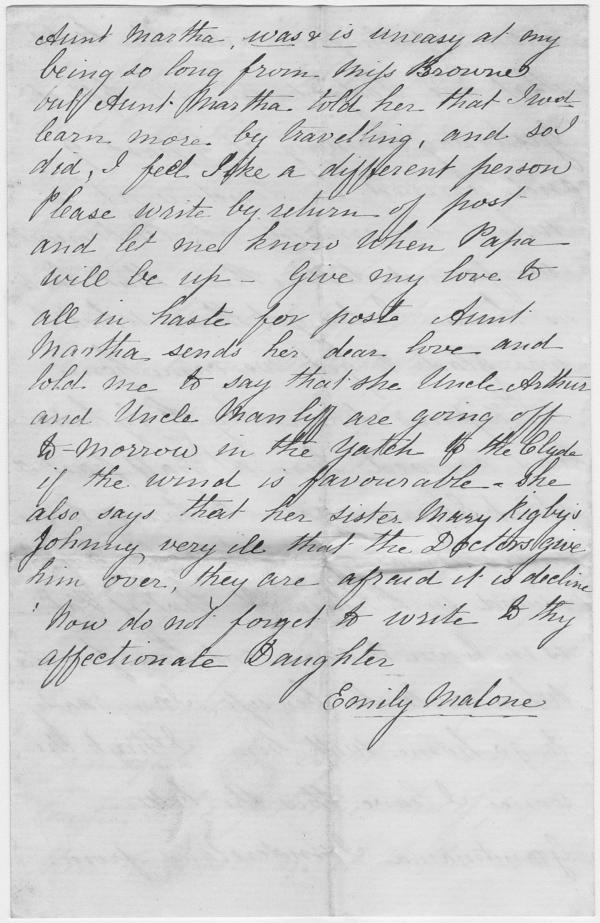 Aunt Martha, was & is uneasy at my
being so long from Miss Browne's
but Aunt Martha told her that I wod
learn more by travelling, and so I
did, I feel like a different person
Please write by return of post
and let me know when Papa
will be up - Give my love to
all in haste for post Aunt
Martha sends her dear love and
told me to say that she Uncle Arthur
and Uncle Manliff are going off
to-morrow in the Yatch to the Clyde
if the wind is favourable - she
also says that her sister Mary Rigby's
Johnny very ill that the Doctors give
him over, they are afraid it is decline
Now do not forget to write to thy
affectionate Daughter
Emily Malone